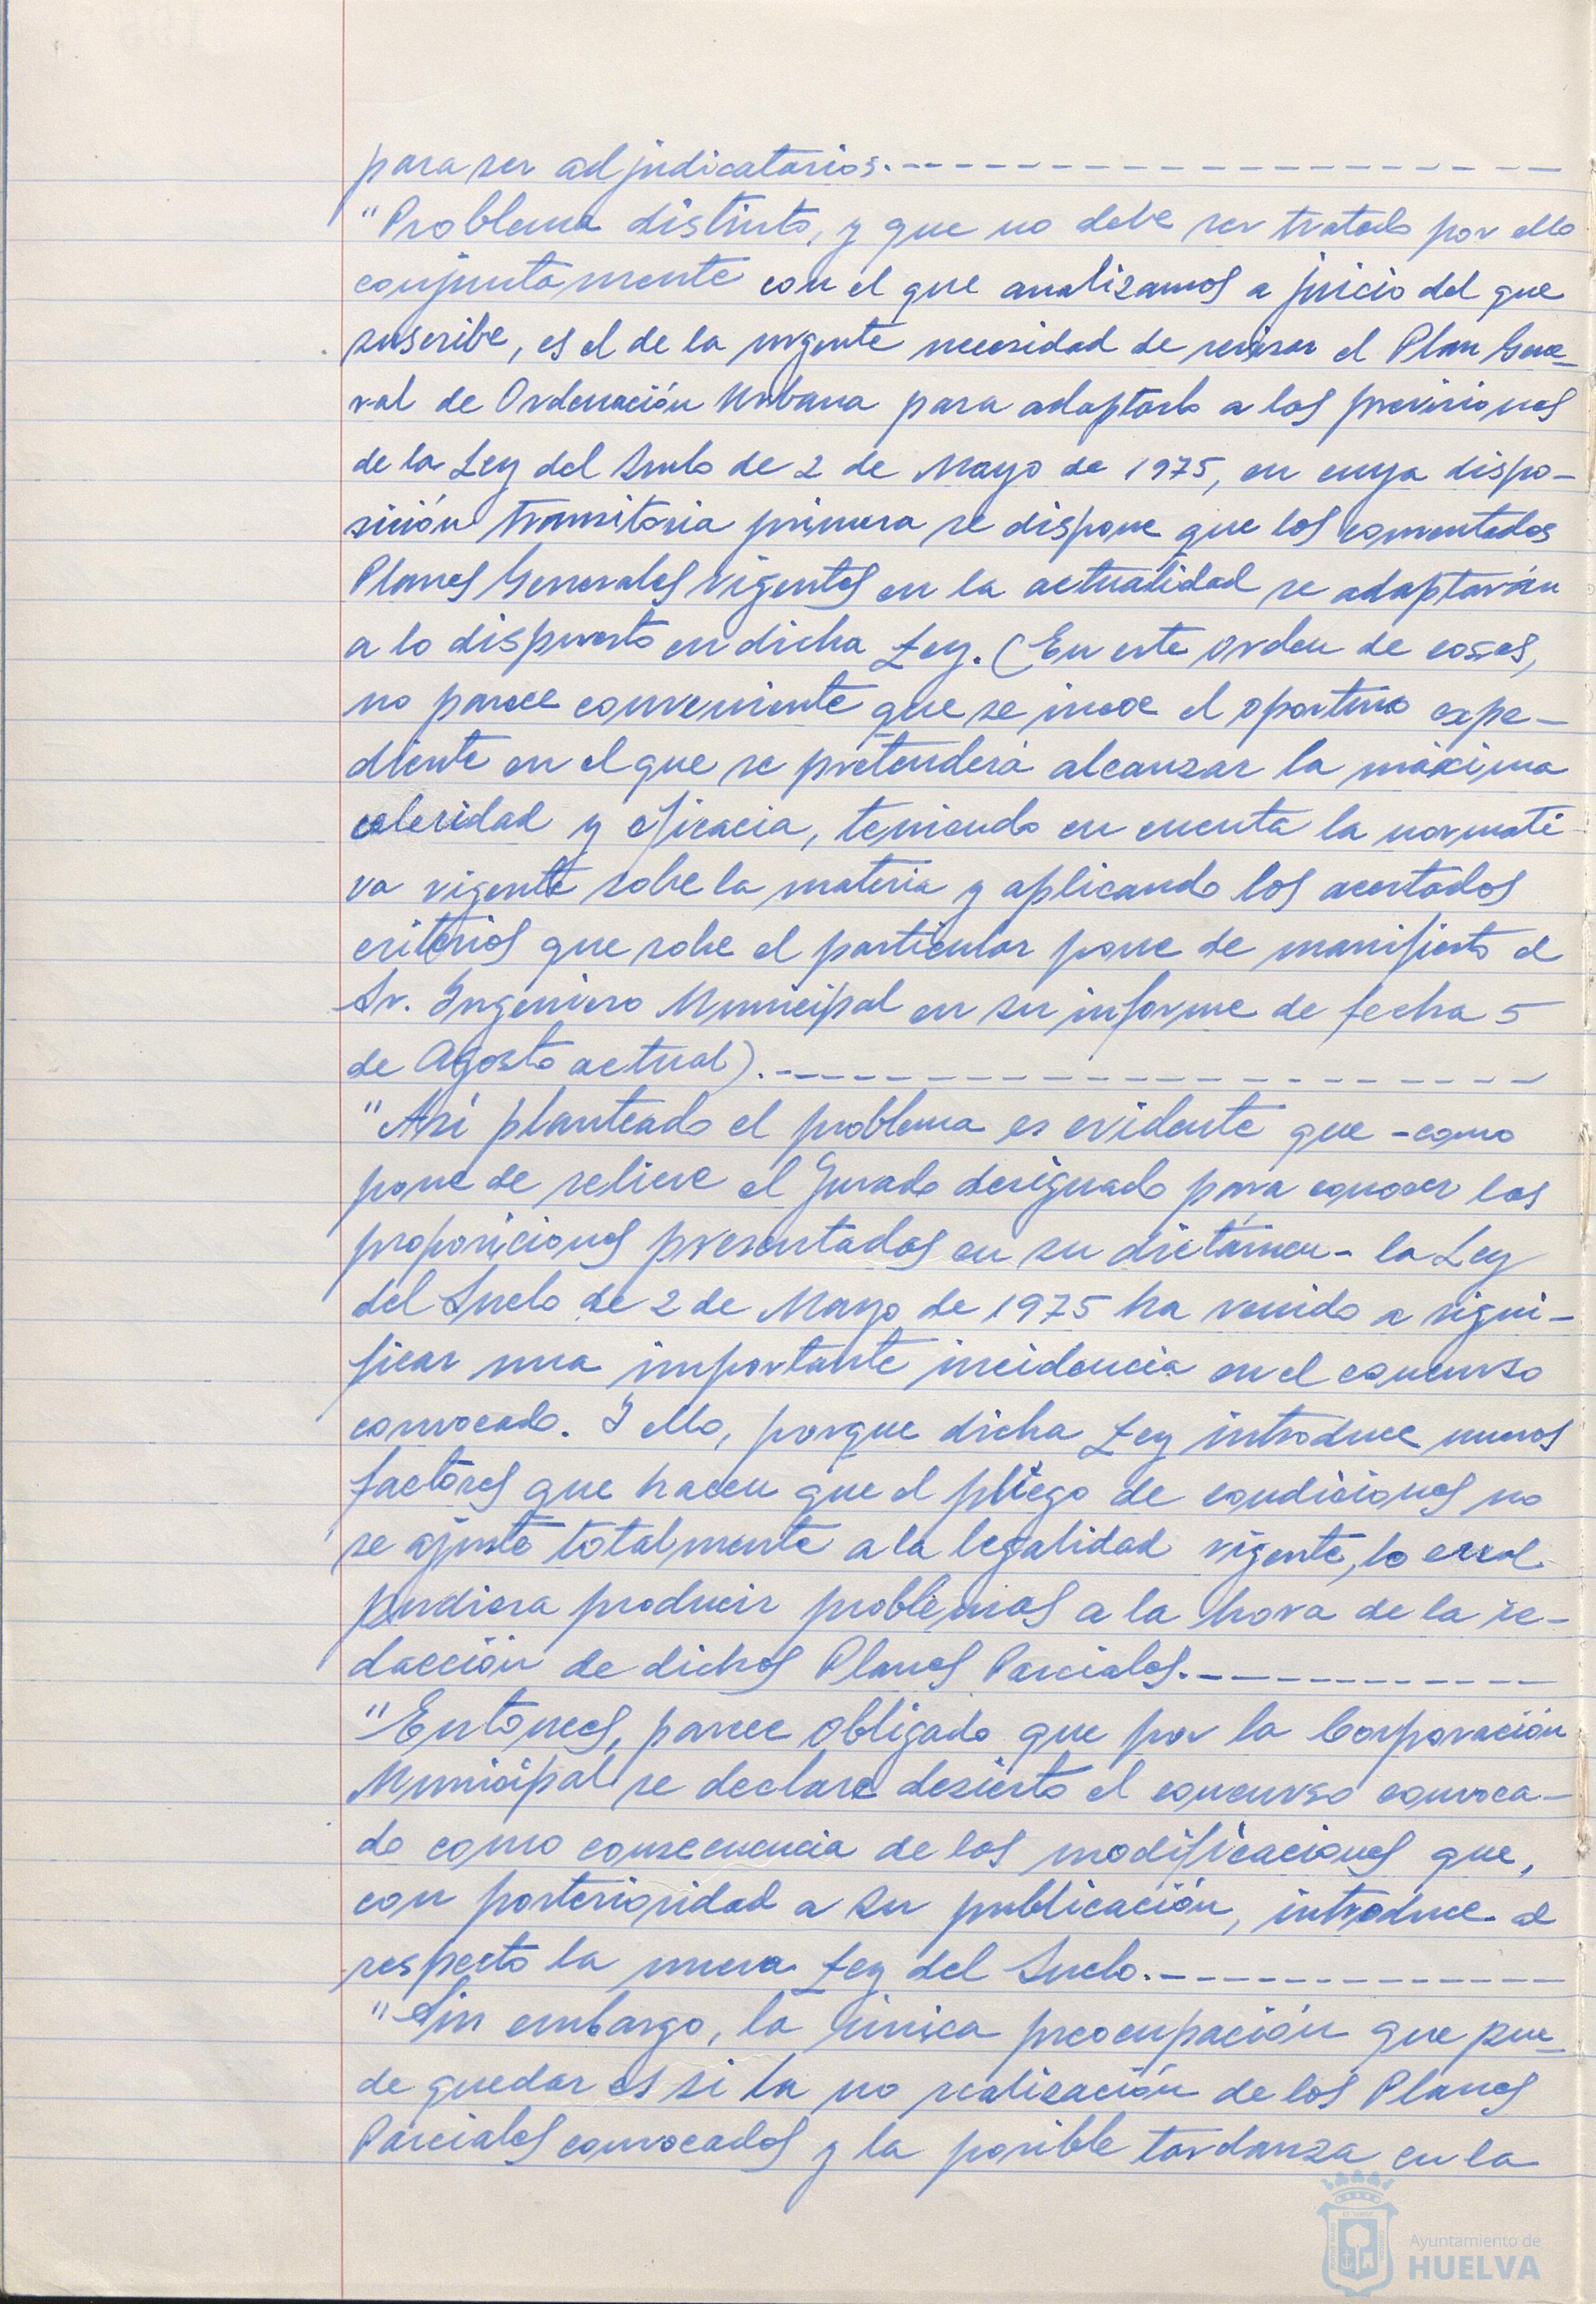 para ser adjudicatarios.- - - - - - - - - - - - - - - - - - -
"Problema distinto, y que no debe ser tratado por ello
conjuntamente con el que analizamos a juicio del que
suscribe, es el de la urgente necesidad de revisar el Plan Gene-
ral de Ordenación Urbana para adaptarlo a las previsiones
de la Ley del Suelo de 2 de Mayo de 1975, en cuya dispo-
sición transitoria primera se dispone que los comentados
Planes Generales vigentes en la actualidad se adaptarán
a lo dispuesto en dicha Ley. (En este orden de cosas,
no parece conveniente que se incoe el oportuno expe-
diente en el que se pretenderá alcanzar la máxima
celeridad y eficacia, teniendo en cuenta la normati-
va vigente sobre la materia y aplicando los acertados
criterios que sobe el particular pone de manifiesto el
Sr. Ingeniero Municipal en su informe de fecha 5
de Agosto actual).- - - - - - - - - - - - - - - - - -
"Así planteado el problema es evidente que -como
pone de relieve el Jurado designado para conocer las
proposiciones presentadas en su dictámen- la Ley
del Suelo de 2 de Mayo de 1975 ha venido a signi-
ficar una importante incidencia en el concurso
convocado. Y ello, porque dicha Ley introduce nuevos
factores que hacen que el pliego de condiciones no
se ajuste totalmente a la legalidad vigente, lo cual
pudiera producir problemas a la hora de la re-
dacción de dichos Planes Parciales.- - - - - - - - - - -
"Entonces, parece obligado que por la Corporación
Municipal se declare desierto el concurso convoca-
do como consecuencia de las modificaciones que,
con posterioridad a su publicación, introduce al
respecto la nueva Ley del Suelo.- - - - - - - - - - - -
"Sin embargo, la única preocupación que pue-
de quedar es si la no realización de los Planes
Parciales convocados y la posible tardanza en la
Ayuntamiento de
HUELVA